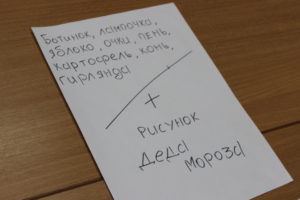 Ботинок, лампочка,
яблоко, очки, пень,
картофель, конь,
гирлянда
+
рисунок
деда
мороза